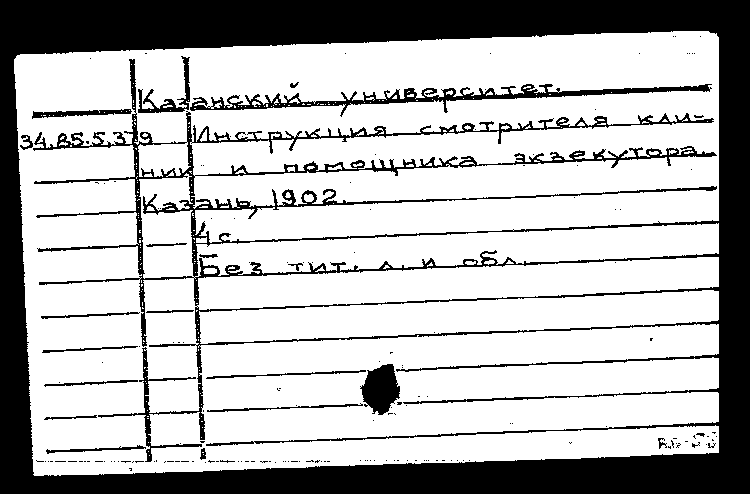 Казанский университет.
34.85.5.379 Инструкция смотрителя кли-
ник и помощника экзекутора.
Казань, 1902.
4 с.
Без тит. л. и обл.